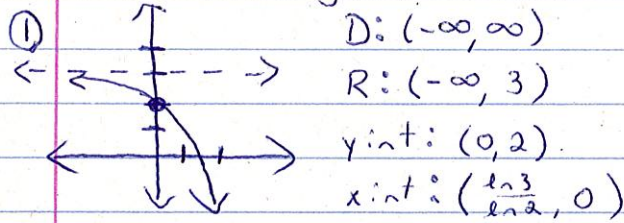 ① D: (-∞, ∞)
R: (-∞, 3)
y int: (0, 2).
x int: (ln3/ln2, 0)